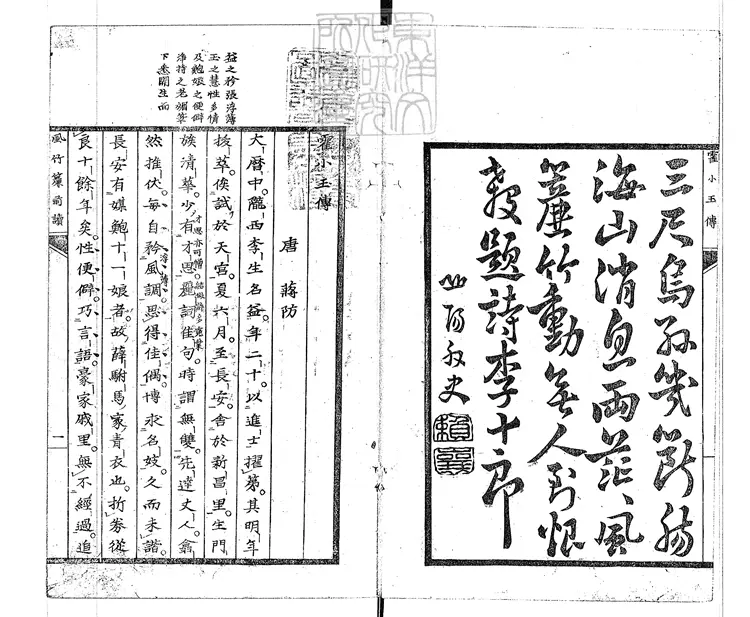 霍小玉傳
三尺烏絲幾斷腸
海山消息兩茫、風
簾竹動無人到恨
殺題詩李十郎
山陽外史
賴襄
東洋文
化研究
所圖書
益之矜張浮薄
玉之慧性多情
及鮑娘之便僻
淨持之老媚筆
下悉開生面
霍小玉傳
唐 蔣防
大曆中。隴西李生名益。年二十。以進士擢第。其明年
拔萃。俟試於天官。夏六月。至長安。舍於新昌里。生門
族清華。少有才思。麗詞佳句。時謂無雙。先達丈人。翕
然推伏。每自矜風調。思得佳偶。博求名妓。久而未諧。
長安有媒鮑十一娘者。故薛駙馬家青衣也。折券從
良十餘年矣。性便僻。巧言語。豪家戚里。無不經過。追
風竹簾前讀
一